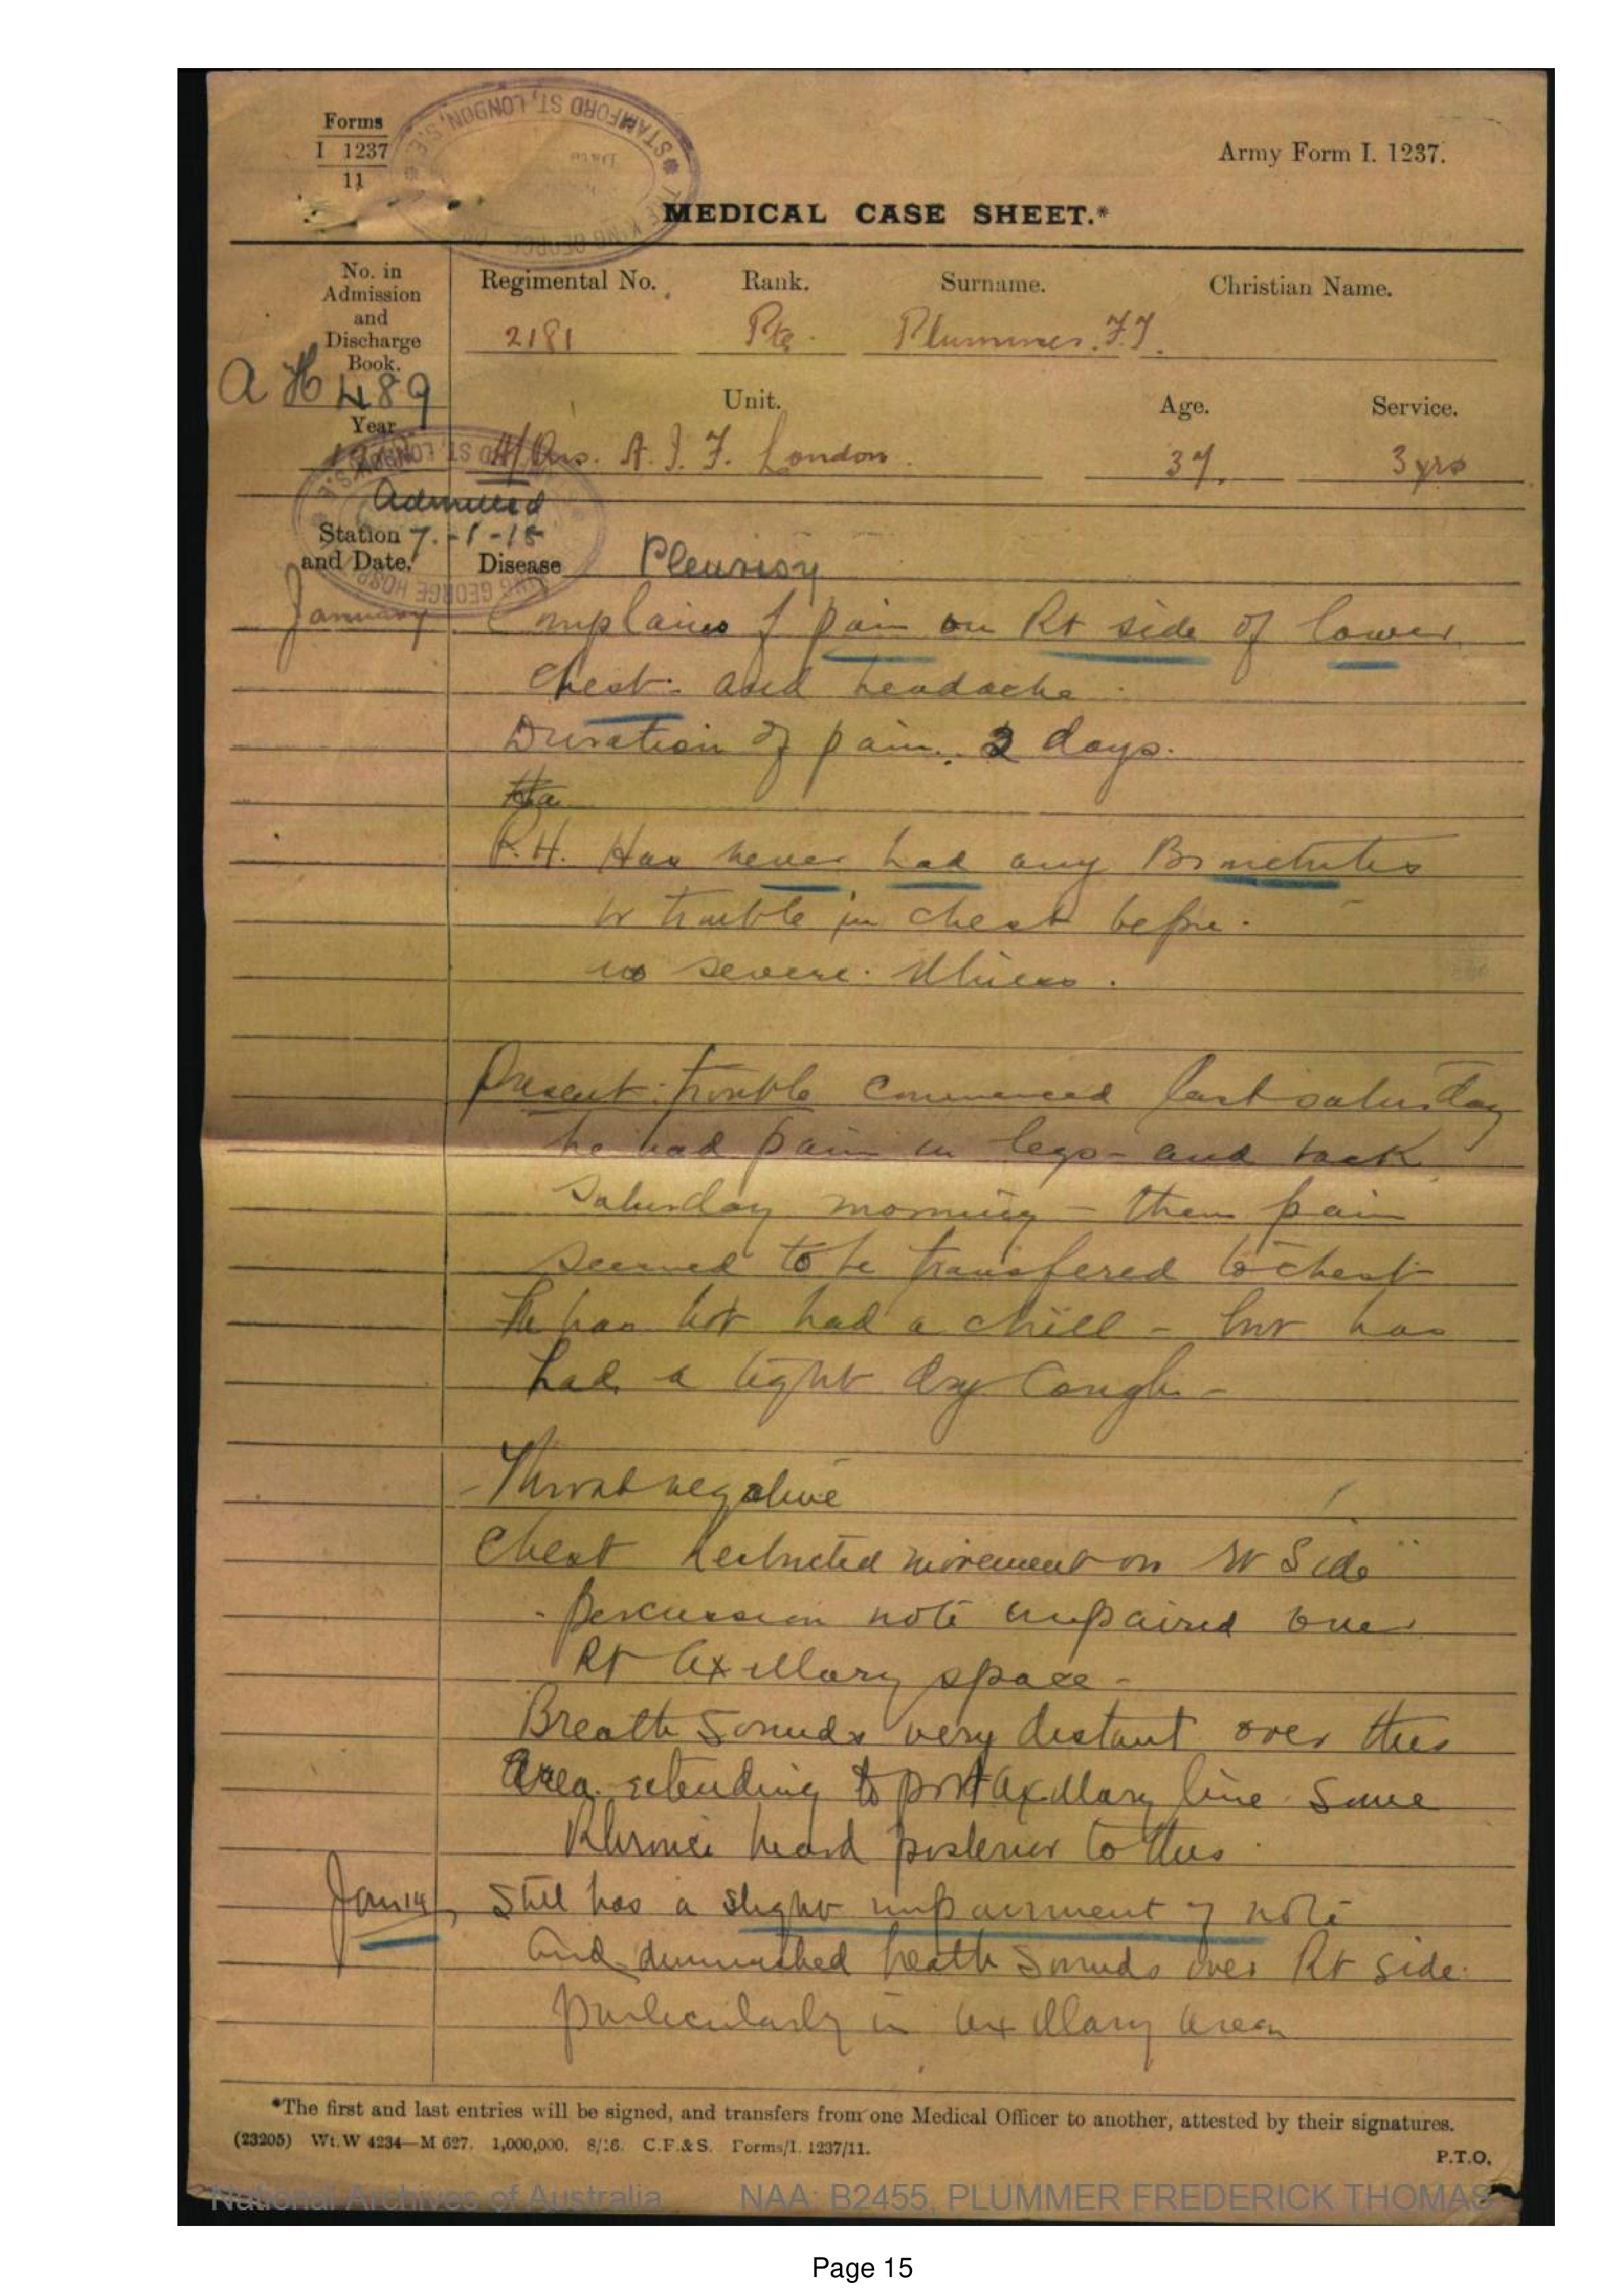 Forms
I 1237
11
STAMFORD ST, LONDON, S.E.
Army Form I. 1237.
MEDICAL CASE SHEET.*
No. in
Admission
and
Discharge
Book.
Regimental No. Rank. Surname. Christian Name.
2181 Pte. Plummer. F.T.
a H 489
Unit. Age. Service.
Year
A. I. F. London. 37. 3 yrs
Admitted
Station 7.-1-18
and Date.
Disease Pleurisy
January Complains of pain on Rt side of lower
chest. and headache.
Duration of pain. 2 days.
P.H. Has never had any Bronchitis
or trouble in chest before.
no severe. illness.
Present trouble commenced last saturday
he had pain in legs - and back
Saturday morning - then pain
seemed to be transfered to chest
He has not had a chill - but has
had a tight dry cough -
- Throat negative
Chest restricted movement on Rt Side
- Percussion note impaired over
Rt axillary space -
Breath sounds very distant over this
area extending to post axillary line some
Rhonci heard posterior to this.
Jan 14 Still has a slight impairment of note
and diminished breath sounds over Rt side.
particularly in axillary area
*The first and last entries will be signed, and transfers from one Medical Officer to another, attested by their signatures.
(23205) Wt. W 4234—M 627. 1,000,000. 8/16. C.F.&S. Forms/I. 1237/11.
P.T.O.
National Archives of Australia NAA: B2455, PLUMMER FREDERICK THOMAS
Page 15